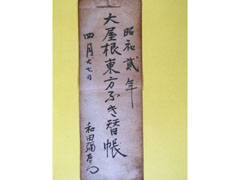 昭和貳年
大屋根東方ふき替帳
四月廿七日
和田